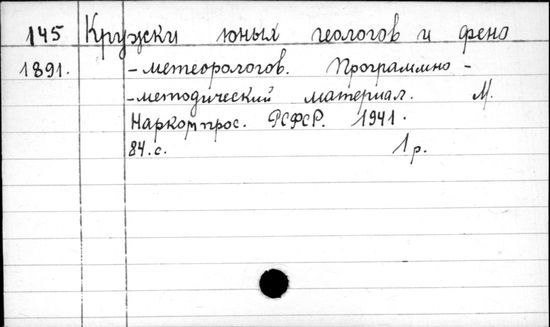 145 Кружки юных геологов и фено
1891. - метеорологов. Программно -
- методический материал. М.
Наркомпрос. РСФСР. 1941.
84. с. 1 р.